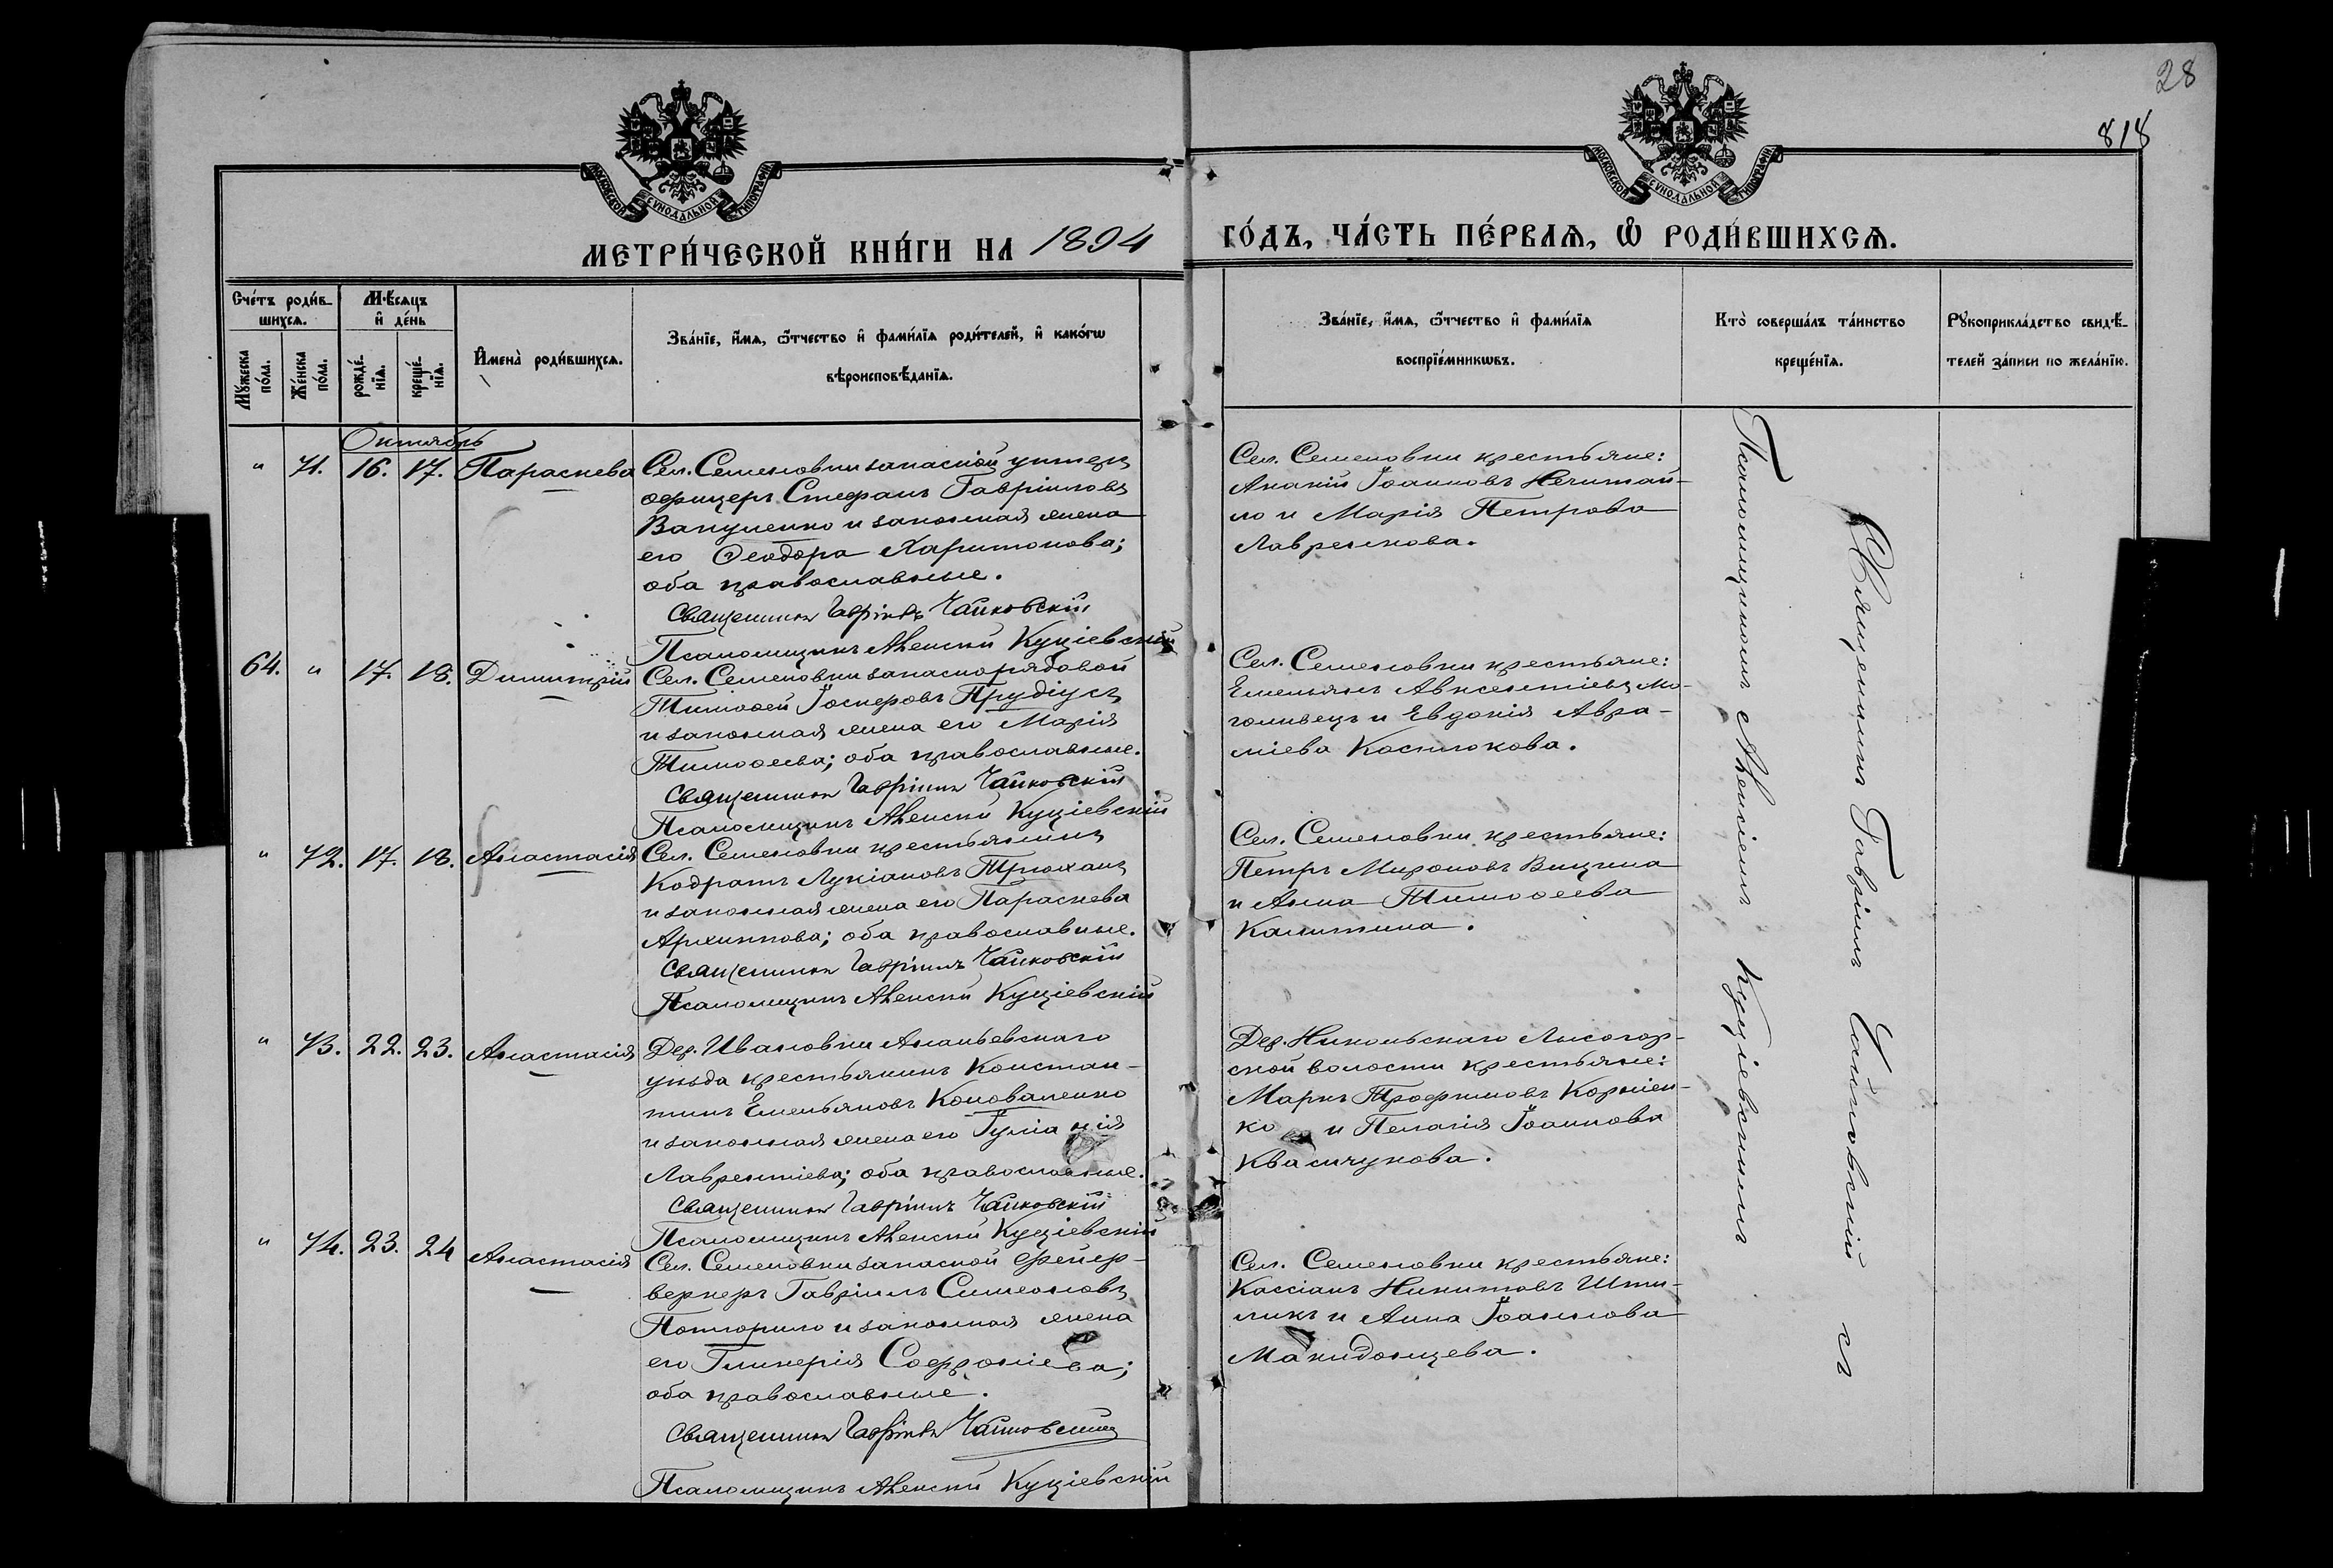 28
818
МОСКОВСКОЙ СѴНОДАЛЬНОЙ ТИПОГРАФІИ
МОСКОВСКОЙ СѴНОДАЛЬНОЙ ТИПОГРАФІИ
МЕТРИ́ЧЕСКОЙ КНИ́ГИ НА 1894 ГО́ДЪ, ЧА́СТЬ ПЕ́РВАѦ, Ѡ РОДИ́ВШИХСѦ.
Сче́тъ роди́в-
шихсѧ.
Мꙋ́жеска по́ла.
Же́нска по́ла.
Мѣ́сѧцъ
и҆ де́нь
рожде́-
нїѧ.
креще́-
нїѧ.
И҆мена̀ роди́вшихсѧ.
Зва́нїе, и҆́мѧ, ѻ҆́тчество и҆ фами́лїѧ роди́телей, и҆ како́гѡ
вѣроисповѣ́данїѧ.
Зва́нїе, и҆́мѧ, ѻ҆́тчество и҆ фами́лїѧ
воспрїе́мникѡвъ.
Кто̀ соверша́лъ та́инство
креще́нїѧ.
Рꙋкоприкла́дство свидѣ́-
телей за́писи по жела́нїю.
Октябрь
" 71. 16. 17. Параскева
Сел. Семеновки запасной унтеръ
офицеръ Стефанъ Гавріиловъ
Вакуленко и законная жена
его Ѳеодора Харитонова;
оба православные.
Священникъ Гавріилъ Чайковскій
Псаломщикъ Алексѣй Куціевскій
Сел. Семеновки крестьяне:
Ананій Іоанновъ Нечитай-
ло и Марія Петрова
Лавренкова.
64. " 17. 18. Димитрій
Сел. Семеновки запасно рядовой
Тимоѳей Іосифовъ Прудіусъ
и законная жена его Марія
Тимоѳеева; оба православные.
Священникъ Гавріилъ Чайковскій
Псаломщикъ Алексѣй Куціевскій
Сел. Семеновки крестьяне:
Емельянъ Авксентіевъ Мо-
голивецъ и Евдокія Авра-
міева Костюкова.
" 72. 17. 18. Анастасія
Сел. Семеновки крестьянинъ
Кодратъ Лукіановъ Трюханъ
и законная жена его Параскева
Архиппова; оба православные.
Священникъ Гавріилъ Чайковскій
Псаломщикъ Алексѣй Куціевскій
Сел. Семеновки крестьяне:
Петръ Мироновъ Вицина
и Анна Тимоѳеева
Калитина.
" 73. 22. 23. Анастасія
Дер. Ивановки Ананьевскаго
уѣзда крестьянинъ Констан-
тинъ Емельяновъ Коноваленко
и законная жена его Іуліанія
Лаврентіева; оба православные.
Священникъ Гавріилъ Чайковскій
Псаломщикъ Алексѣй Куціевскій
Дер. Никольскаго Лысогор-
ской волости крестьяне:
Маркъ Трофимовъ Корніен-
ко и Пелагія Іоаннова
Квасничукова.
" 74. 23. 24 Анастасія
Сел. Семеновки запасной фейер-
веркеръ Гавріилъ Симеоновъ
Потюрило и законная жена
его Гликерія Софроніева;
оба православные.
Священникъ Гавріилъ Чайковскій
Псаломщикъ Алексѣй Куціевскій
Сел. Семеновки крестьяне:
Кассіанъ Никитовъ Шти-
ликъ и Анна Іоаннова
Македонцева.
Священникъ Гавріилъ Чайковскій съ
Псаломщикомъ Алексѣемъ Куціевскимъ